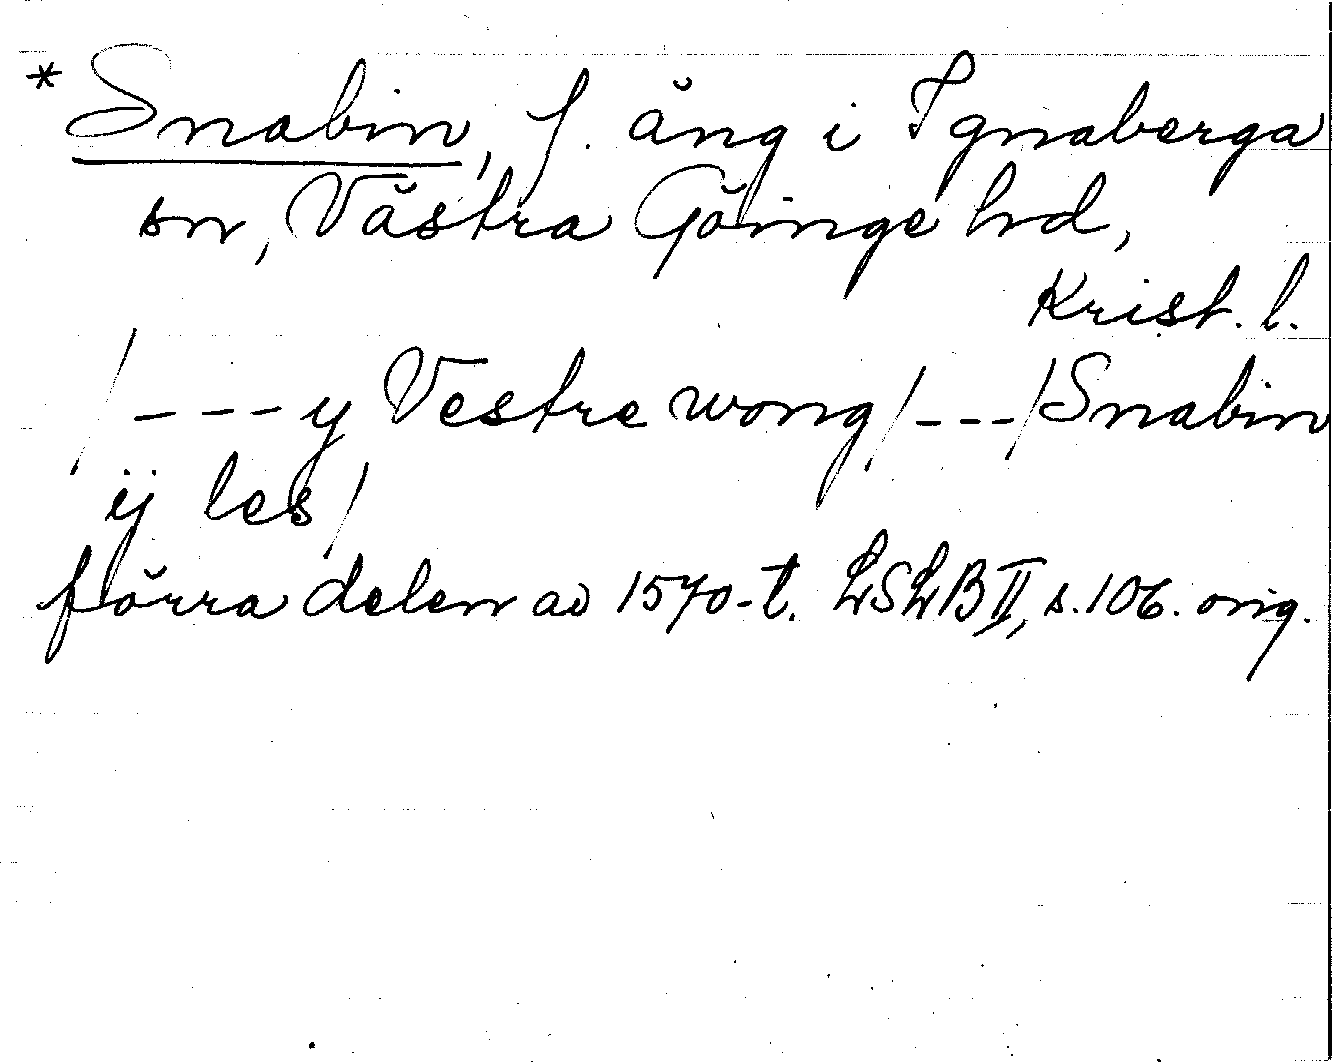 * Snabin, f. äng i Ignaberga
sn, Västra Göinge hd,
Krist. l.
/---y Vestre wong/---/Snabin
ij les/
förra delen av 1570-t. LSLB II, s.106. orig.